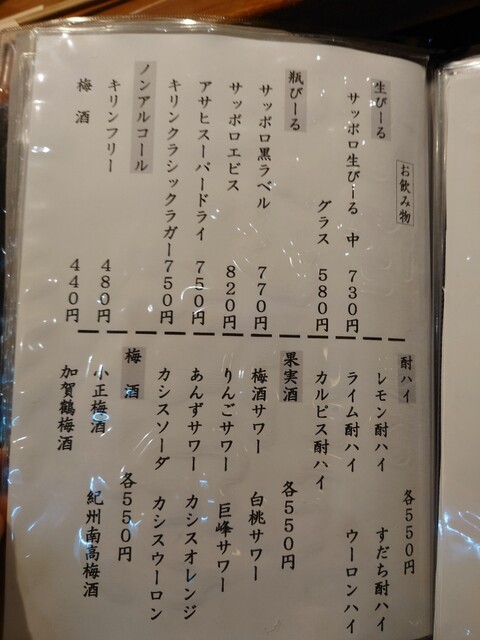 お飲み物
生びーる
サッポロ生びーる 中 730円
グラス 580円
瓶びーる
サッポロ黒ラベル 770円
サッポロエビス 820円
アサヒスーパードライ 750円
キリンクラシックラガー750円
ノンアルコール
キリンフリー 480円
梅酒 440円
酎ハイ 各550円
レモン酎ハイ すだち酎ハイ
ライム酎ハイ ウーロンハイ
カルピス酎ハイ
果実酒 各550円
梅酒サワー 白桃サワー
りんごサワー 巨峰サワー
あんずサワー カシスオレンジ
カシスソーダ カシスウーロン
梅酒 各550円
小正梅酒 紀州南高梅酒
加賀鶴梅酒